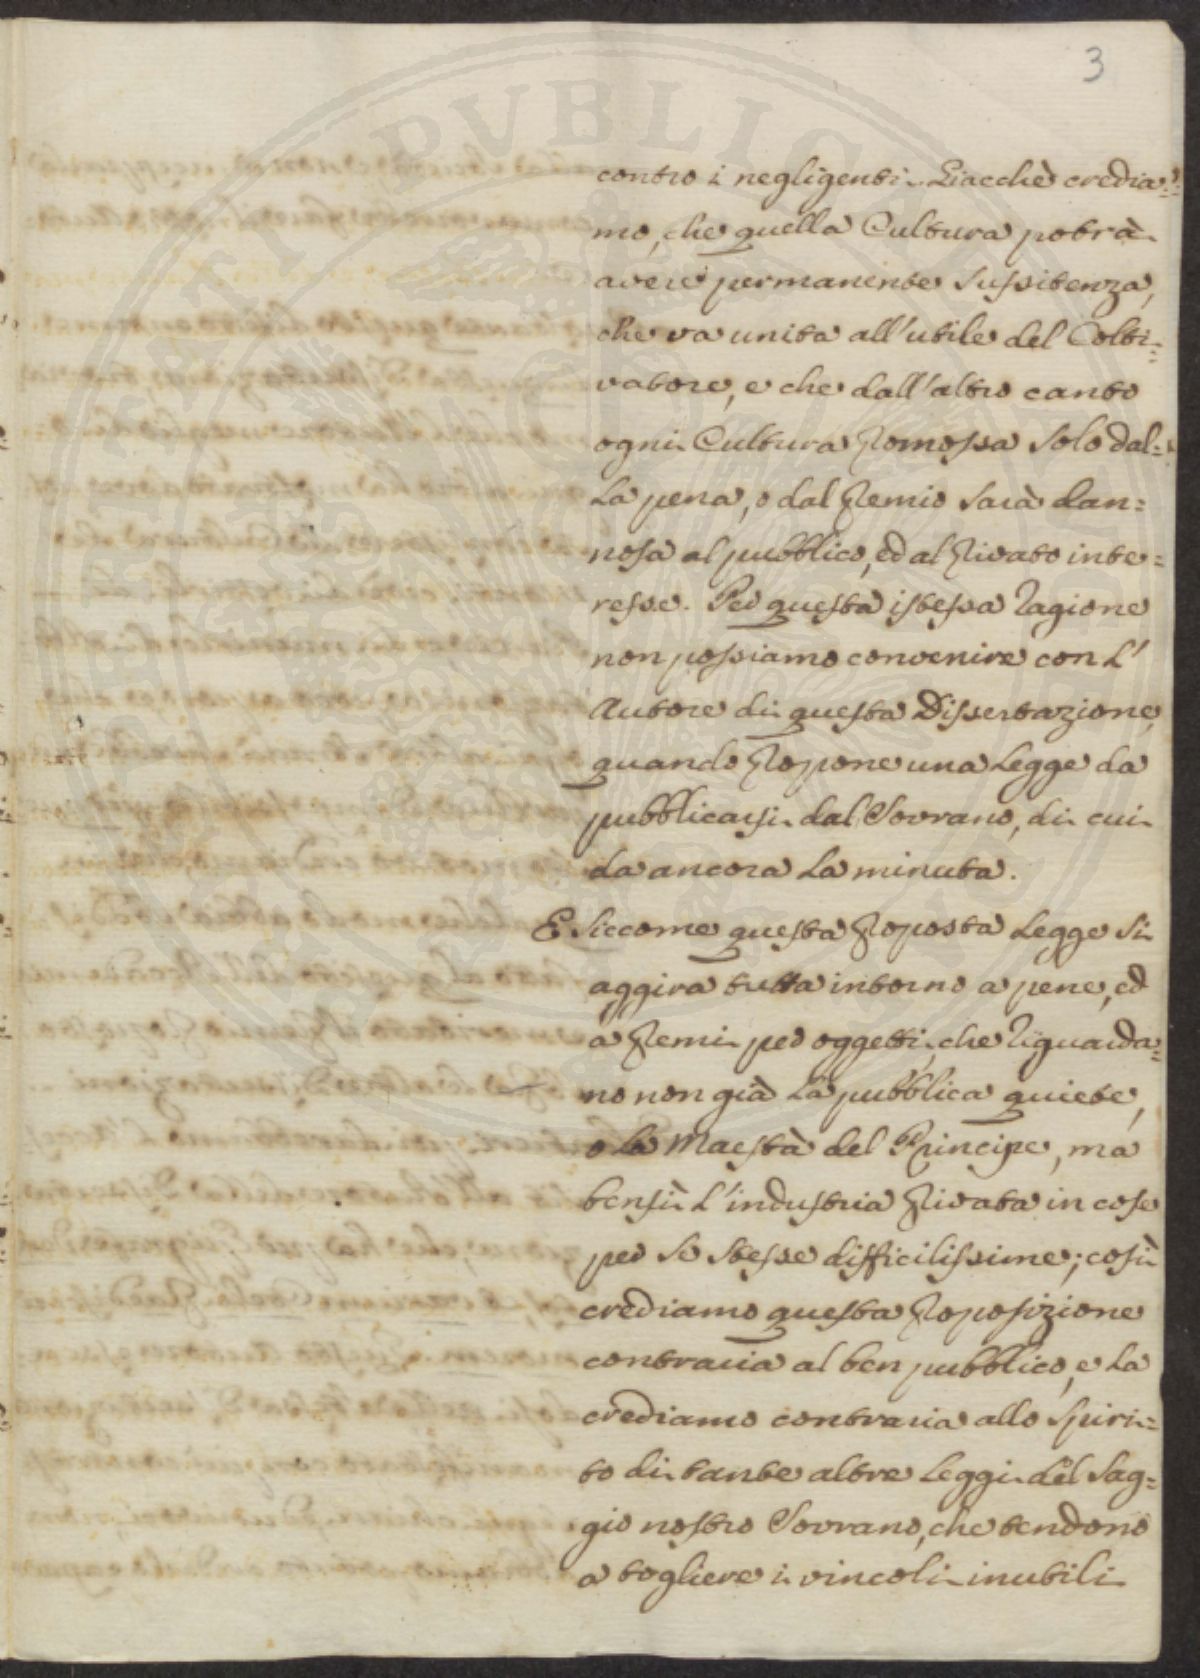 3
contro i negligenti. Giacchè credia=
mo, che quella Cultura potrà
avere permanente sussitenza,
che va unita all'utile del Colti=
vatore, e che dall'altro canto
ogni Cultura promossa solo dal=
la pena, o dal premio sarà dan=
nosa al pubblico, ed al privato inte=
resse. Per questa istessa ragione
non possiamo convenire con l'
Autore di questa Dissertazione,
quando propone una Legge da
pubblicarsi dal Sovrano, di cui
da ancora la minuta.
E siccome questa proposta Legge si
aggira tutta intorno a pene, ed
a premi per oggetti, che riguarda=
no non già la pubblica quiete,
o la Maestà del Principe, ma
bensì l'industria privata in cose
per se stesse difficilissime; così
crediamo questa proposizione
contraria al ben pubblico, e la
crediamo contraria allo spiri=
to di tante altre Leggi del Sag=
gio nostro Sovrano, che tendono
a togliere i vincoli inutili